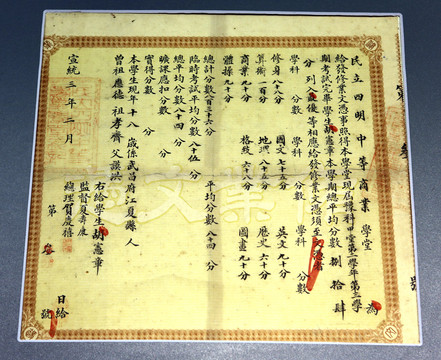 民立四明中等商業學堂
給發修業文憑事照得本學堂現屆預科甲堂第一學年第二學
期考試完畢學生胡憲章本學期總平均分數捌拾肆
分列入最優等相應給發修業文憑須至文憑者
學科 分數 學科 分數 學科 分數
修身八十八分 國文七十五分 英文九十分
算術一百分 地理八十五分 歷史六十分
商業九十分 格致六十八分 圖畫九十分
體操九十分
總計分數八百三十六分 平均分數八十四分
臨時考試平均分數八十五分
總平均分數八十四分
曠課應扣分數 分
實得分數 分
本學生現年十八歲係武昌府江夏縣人
曾祖應德 祖孝齊 父謨洪
右給學生胡憲章
監督夏壽康
總理賀慶禧
宣統三年二月 日給
第 號